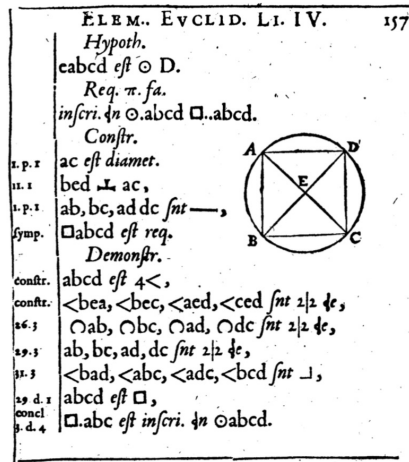 ELEM.. EVCLID. LI. IV. 157
Hypoth.
eabcd est ⊙ D.
Req. π. fa.
inscri. in ⊙.abcd □..abcd.
Constr.
1. p. 1 ac est diamet.
11. 1 bed ⊥ ac,
1. p. 1 ab, bc, ad dc snt —,
symp. □abcd est req.
Demonstr.
constr. abcd est 4<,
constr. <bea, <bec, <aed, <ced snt 2|2
26. 3 ∩ab, ∩bc, ∩ad, ∩dc snt 2|2
29. 3 ab, bc, ad, dc snt 2|2
31. 3 <bad, <abc, <adc, <bcd snt ┘,
29 d. 1 abcd est □,
concl
3. d. 4 □.abc est inscri. in ⊙abcd.
A D
E
B C